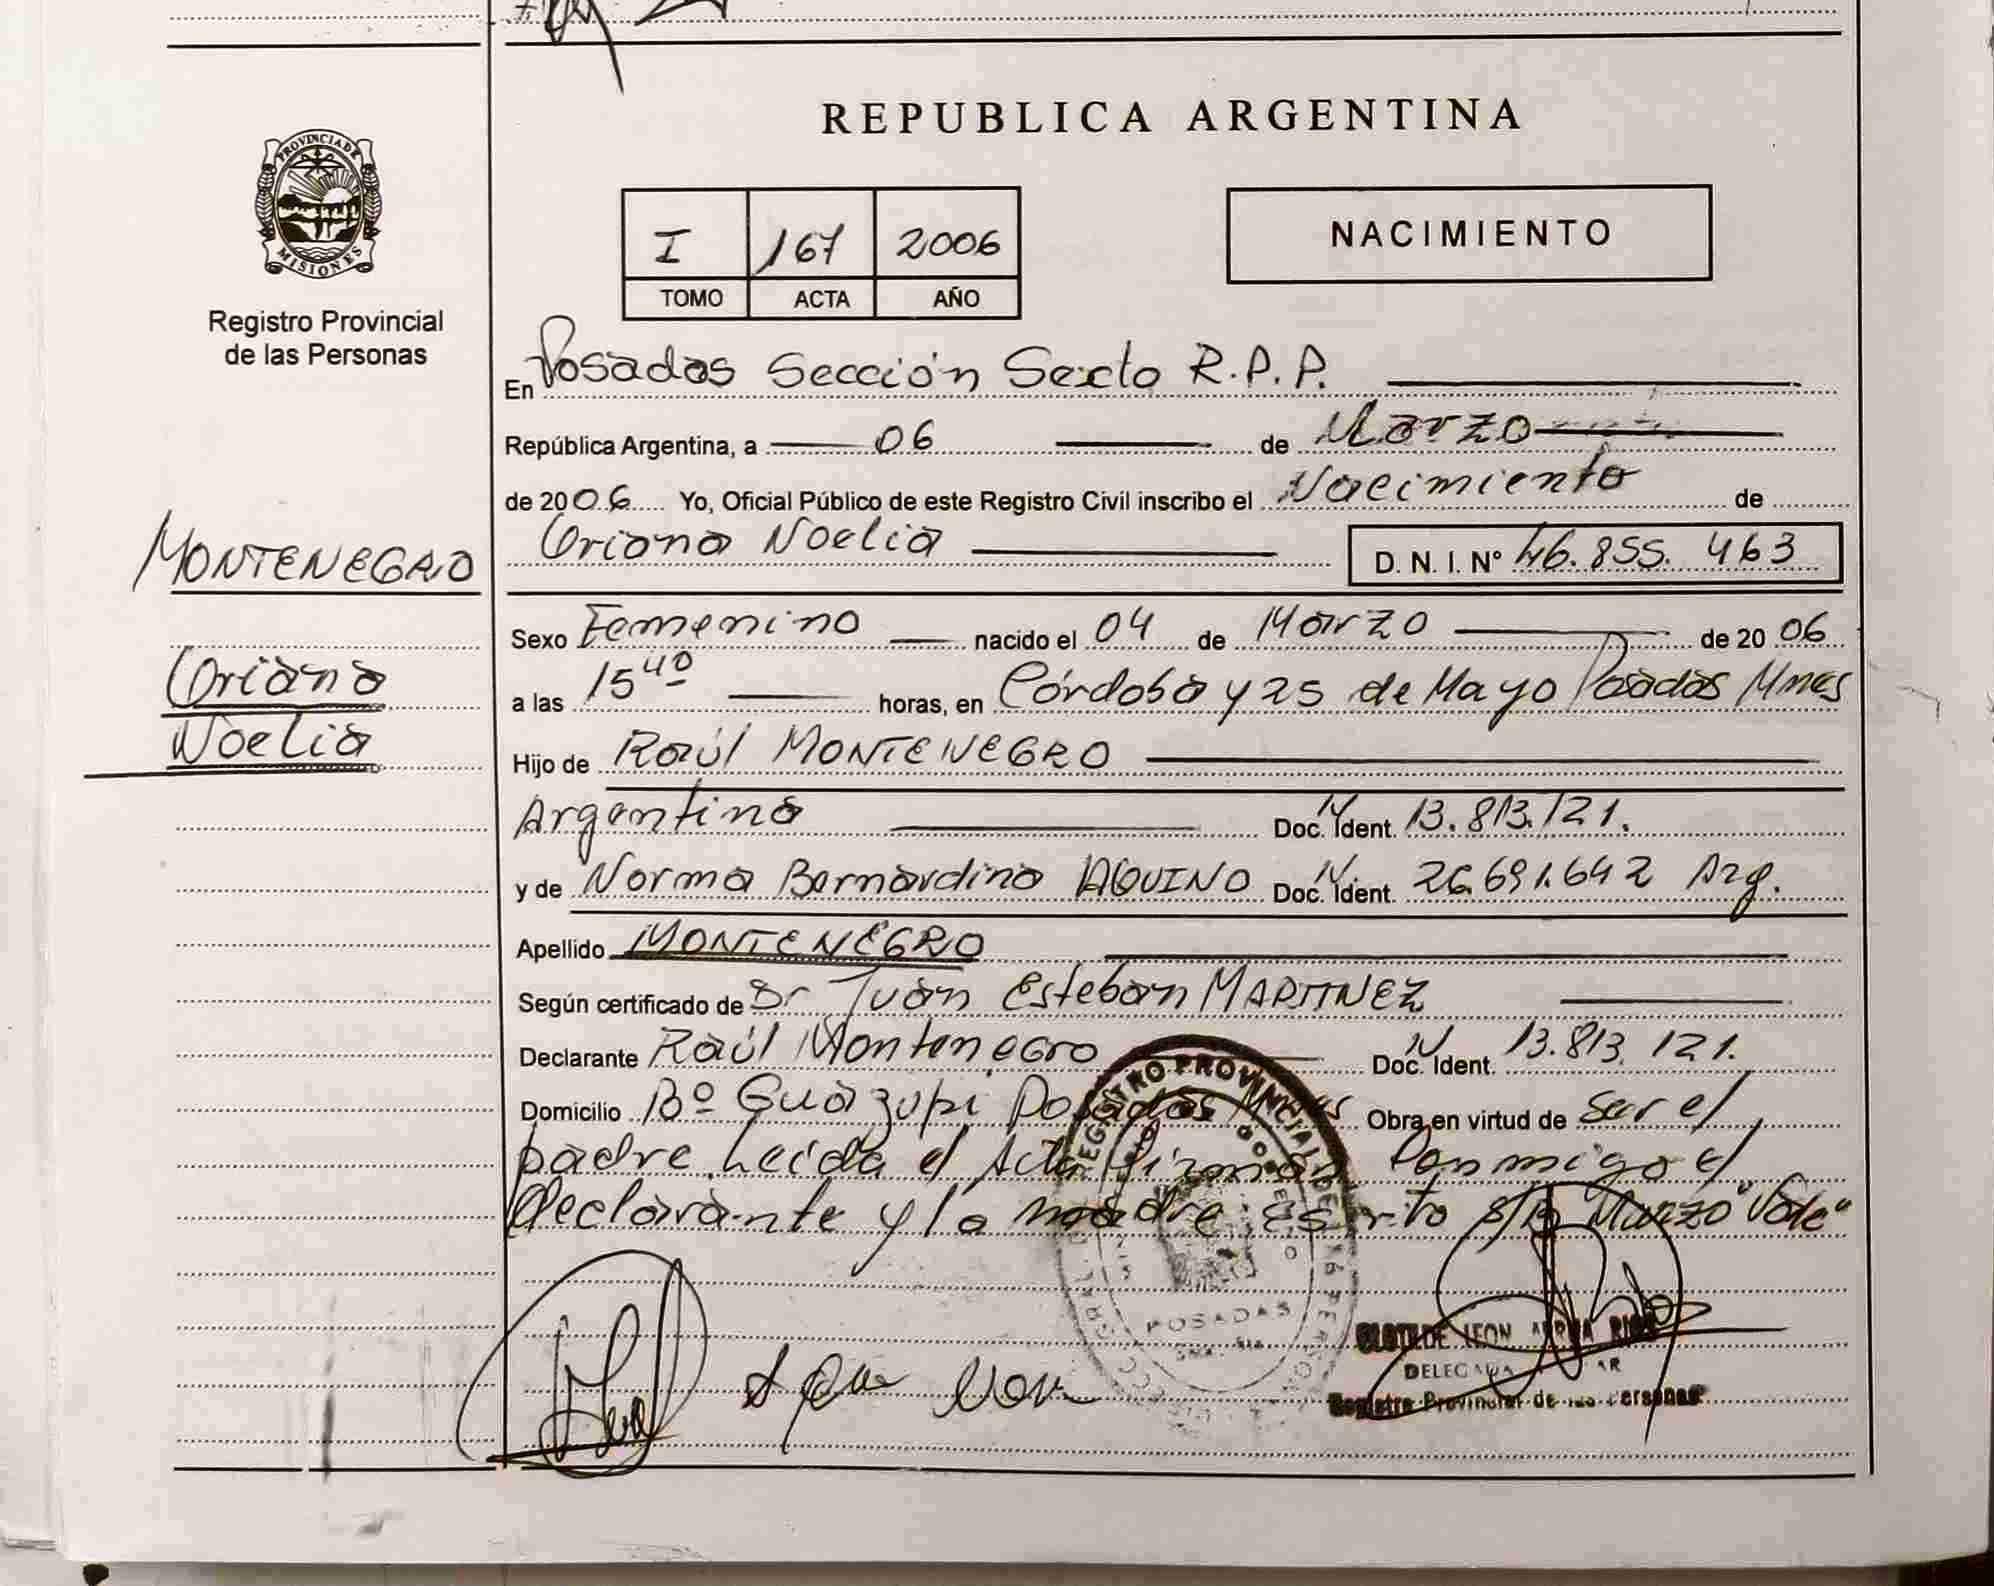 REPUBLICA ARGENTINA
PROVINCIA DE
MISIONES
Registro Provincial
de las Personas
I 167 2006
TOMO ACTA AÑO
NACIMIENTO
En Posadas Sección Sexta R.P.P.
República Argentina, a 06 de Marzo
de 2006 Yo, Oficial Público de este Registro Civil inscribo el Nacimiento de
MONTENEGRO
Oriana
Noelia
Oriana Noelia D. N. I. Nº 46.855.463
Sexo Femenino nacido el 04 de Marzo de 20 06
a las 15 40 horas, en Córdoba y 25 de Mayo Posadas Mnes
Hijo de Raúl MONTENEGRO
Argentino Doc. Ident. 13.813.121.
y de Norma Bernardina AQUINO Doc. Ident. 26.691.642 Arg.
Apellido MONTENEGRO
Según certificado de Dr Juan Esteban MARTINEZ
Declarante Raúl Montenegro Doc. Ident. 13.813.121.
Domicilio Bº Guazupi Posadas Mnes Obra en virtud de ser el
padre. Leída el Acta firman conmigo el
declarante y la madre Escrito s/b Marzo "Vale"
REGISTRO PROVINCIAL DE
POSADAS
CLOTILDE LEON
DELEGADA
Registro Provincial de las Personas